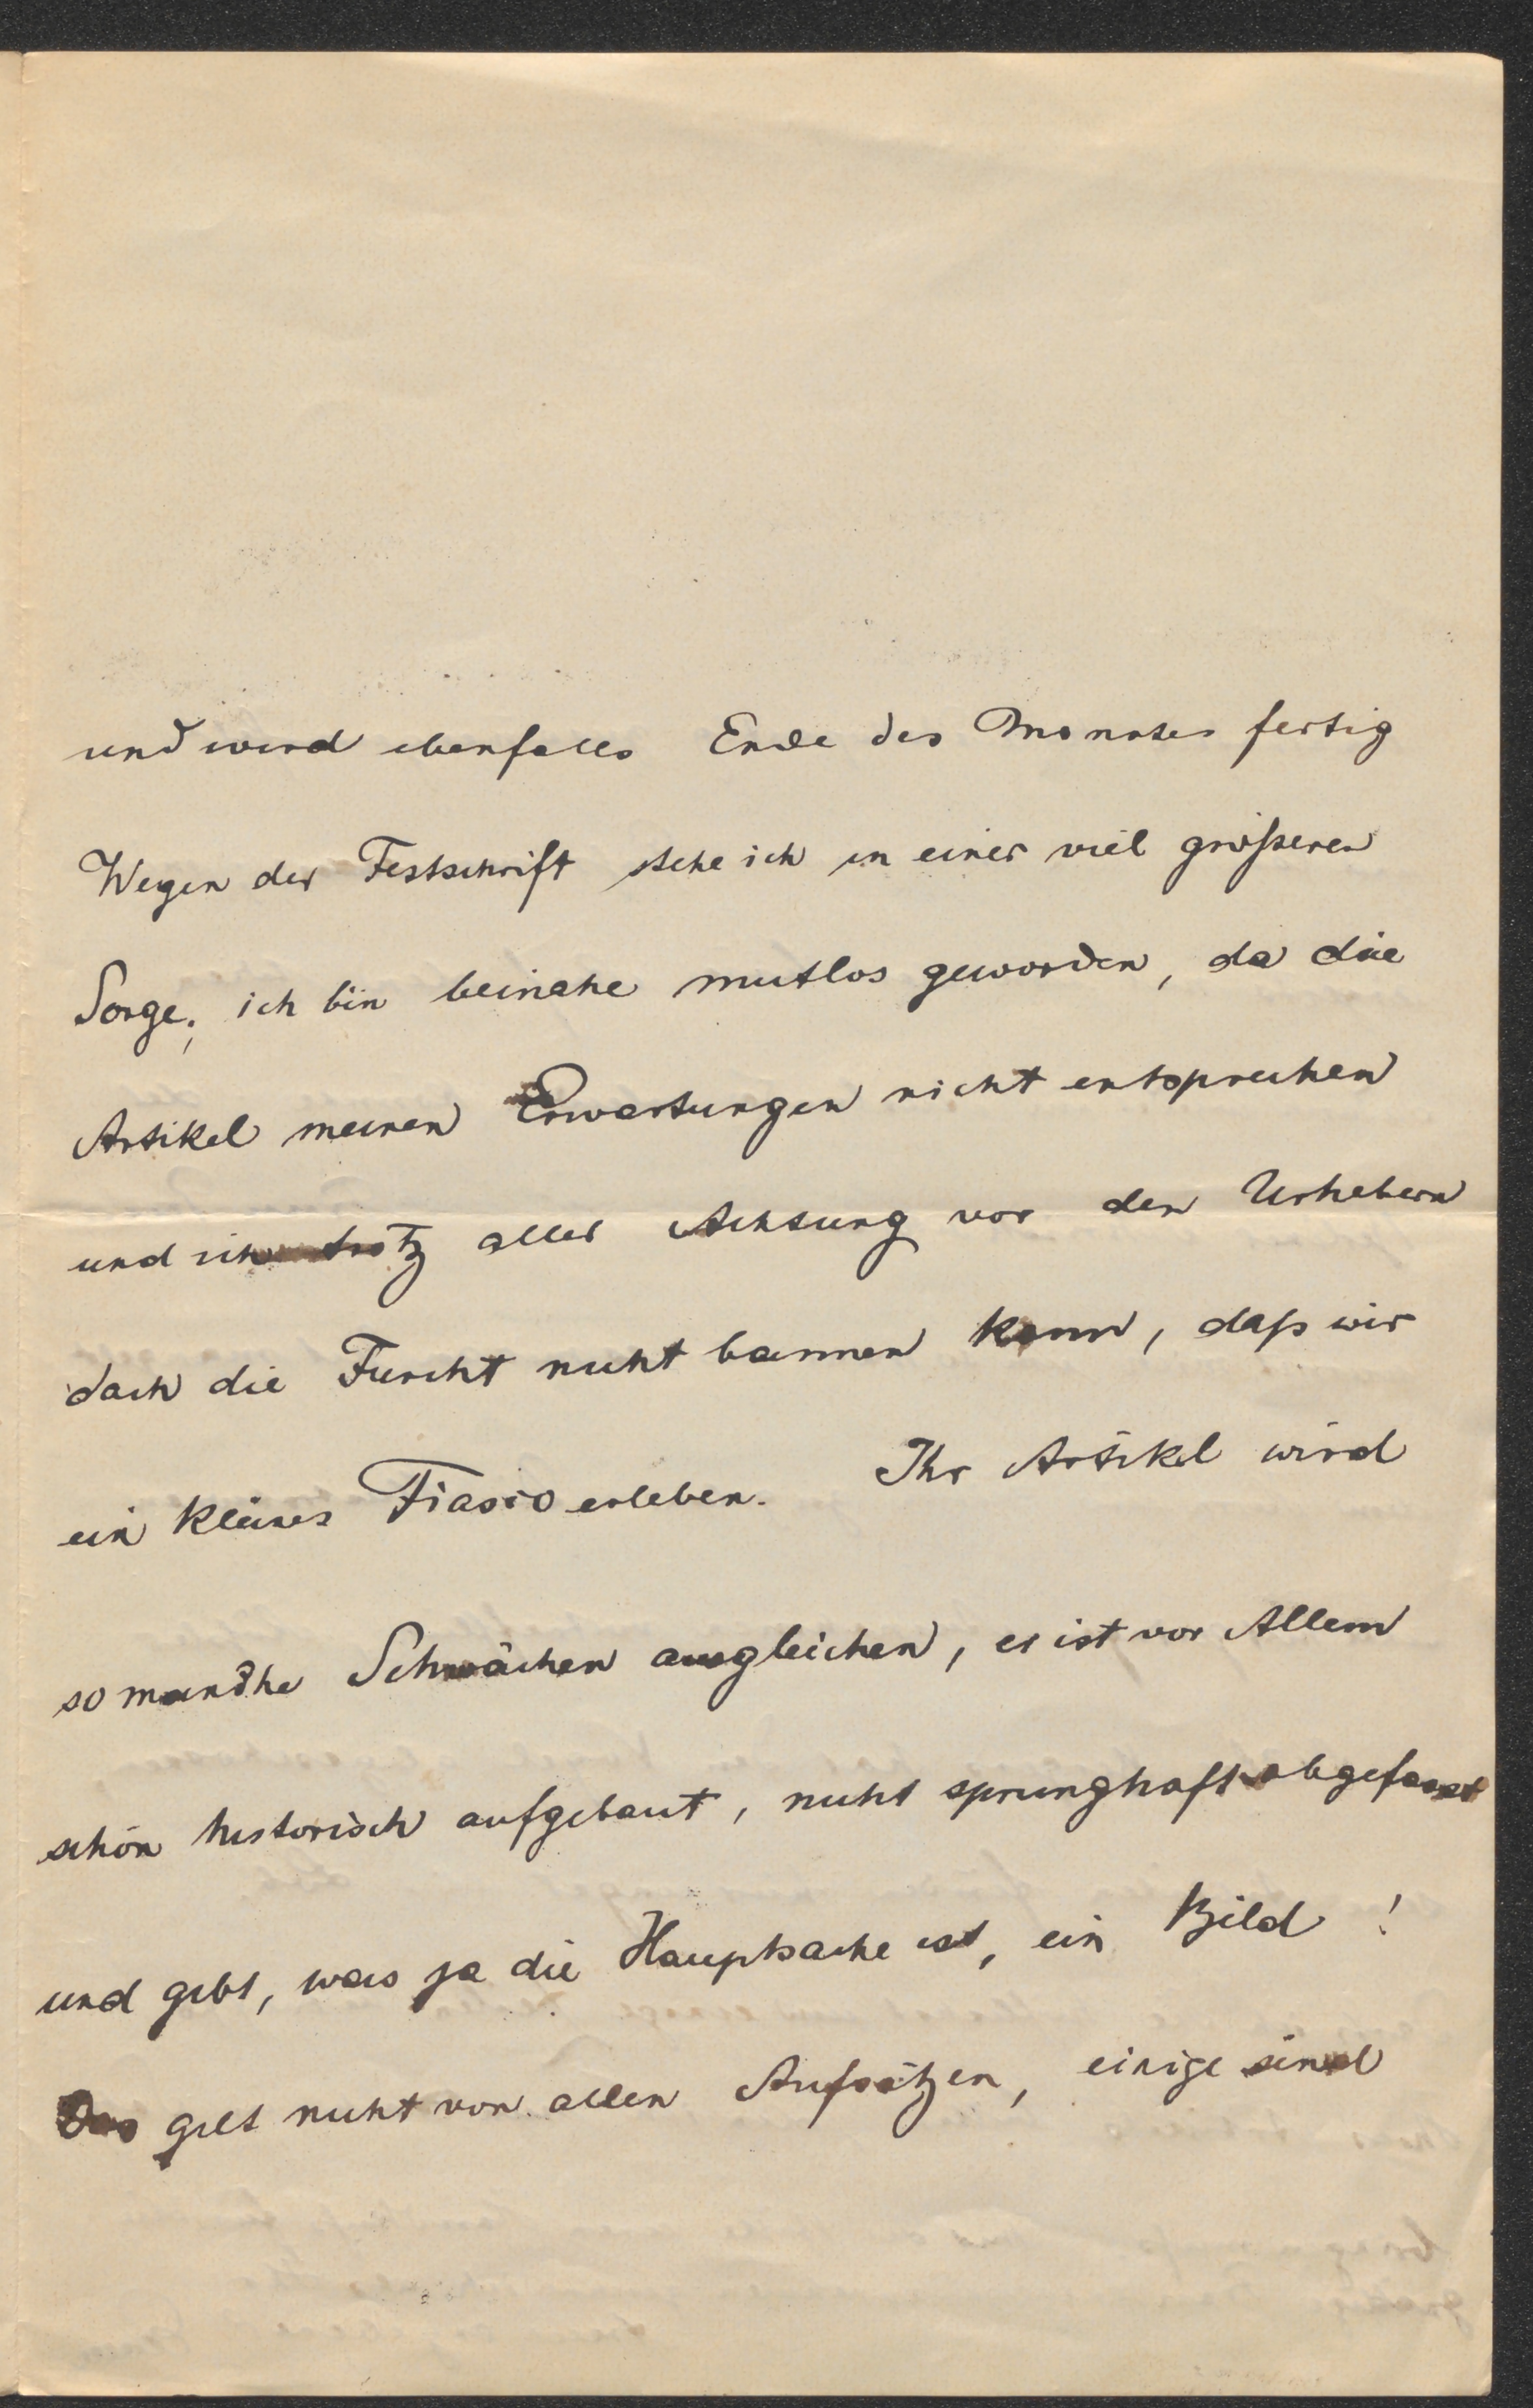 und wird ebenfalls Ende des Monates fertig
Wegen der Festschrift stehe ich in einer viel größeren
Sorge; ich bin beinahe mutlos geworden, da die
Artikel meinen Erwartungen nicht entsprechen
und ich trotz aller Achtung vor den Urhebern
doch die Furcht nicht bannen kann, daß wir
ein kleines Fiasco erleben. Ihr Artikel wird
so manche Schwächen ausgleichen, er ist vor Allem
schön historisch aufgebaut, nicht sprunghaft abgefasst
und gibt, was ja die Hauptsache ist, ein Bild!
Das gilt nicht von allen Aufsätzen, einige sind